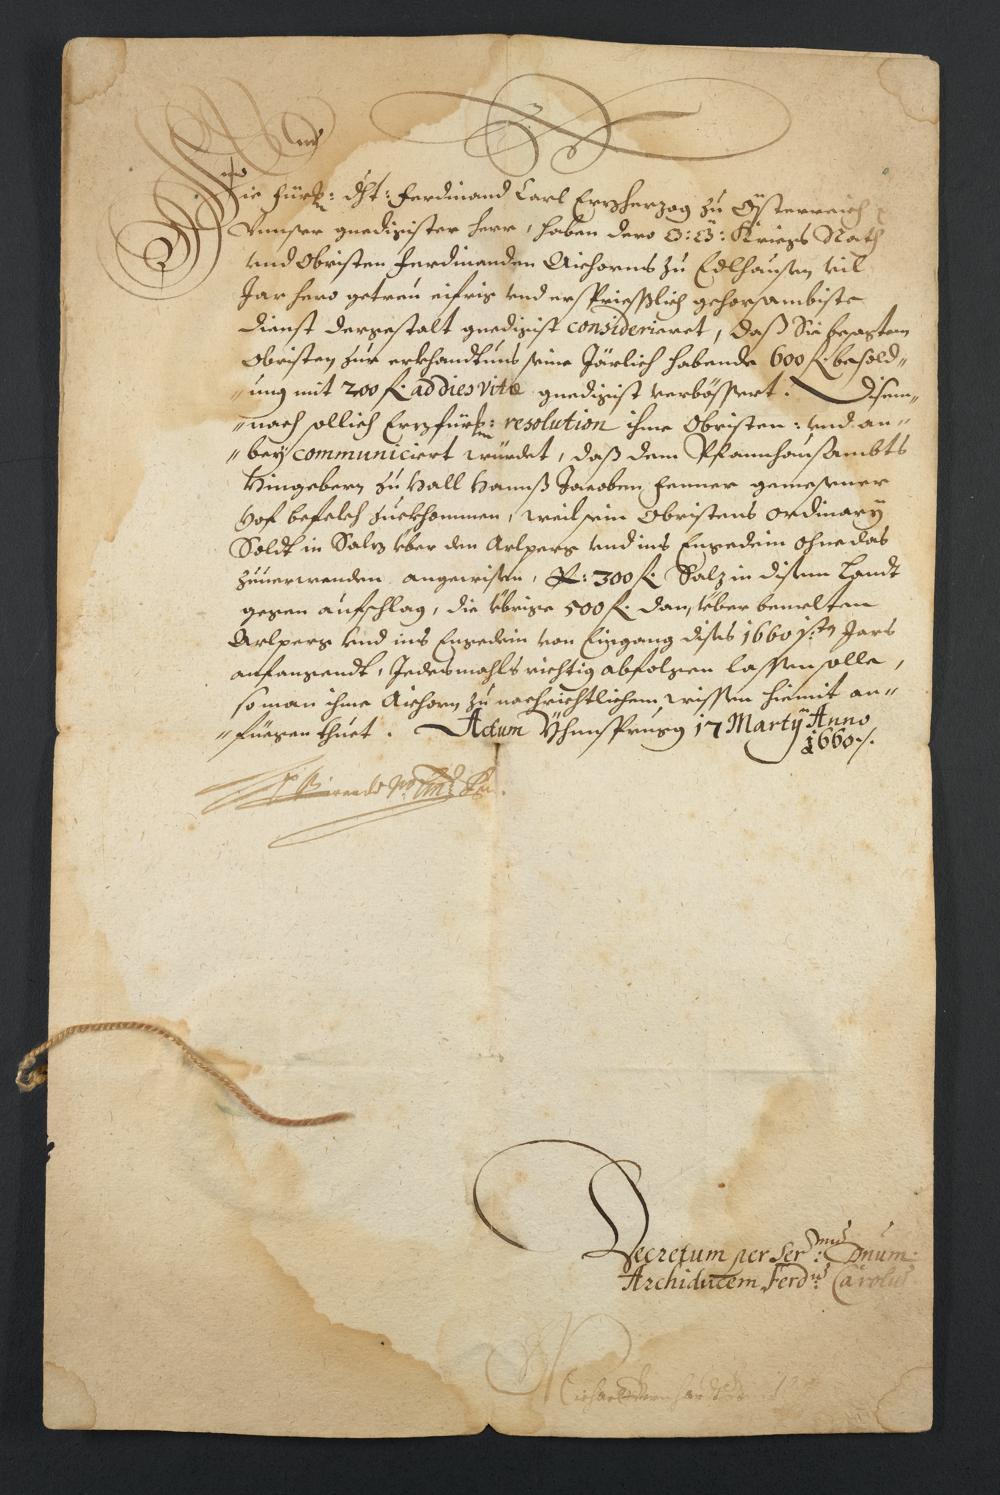 Die Fürst: Dht: Ferdinand Carl Erzherzog zu Österreich
Vnnser gnedigister Herr, haben dero O: Ö: Kriegs Rath
vnd Obristen Ferdinanden Aichorns zu Edlhausen vil
Jar hero getreu eifrig vnd ersprießlich gehorsambiste
Dienst dergestalt gnedigist considerieret, daß Sie besagten
Obristen zur erkhandtnus seine Järlich habende 600 f. besold„
„ung mit 200 f. ad dies vitæ gnedigist verbössert. Disem„
„nach sollich Erzfürst: resolution ihme Obristen: vnd an„
„bey communiciert würdet, daß dem Pfannhausambts
Hingebern zu Hall Hannß Jacoben Fenner gemessner
Hof befelch zuekhommen, weil sein Obristens ordinary
Soldt in Salz yber den Arlperg vnd ins Engedein ohne das
zuuerwenden angewisen, Er: 300 f. Salz in disem Landt
gegen aufschlag, die ybrige 500 f. dan, yber bemelten
Arlperg vnd ins Engedein von Eingang dises 1660 isten Jars
anfangendt, Jedesmahls richtig abfolgen lassen solle,
so man ihme Aichorn zu nachrichtlichem wissen hiemit an„
„fuegen thuet. Actum Yhnsprugg 17 Martÿ Anno
1660./.
Decretum per Ser:mus Dnum:
Archiducem Ferd:us Carolus